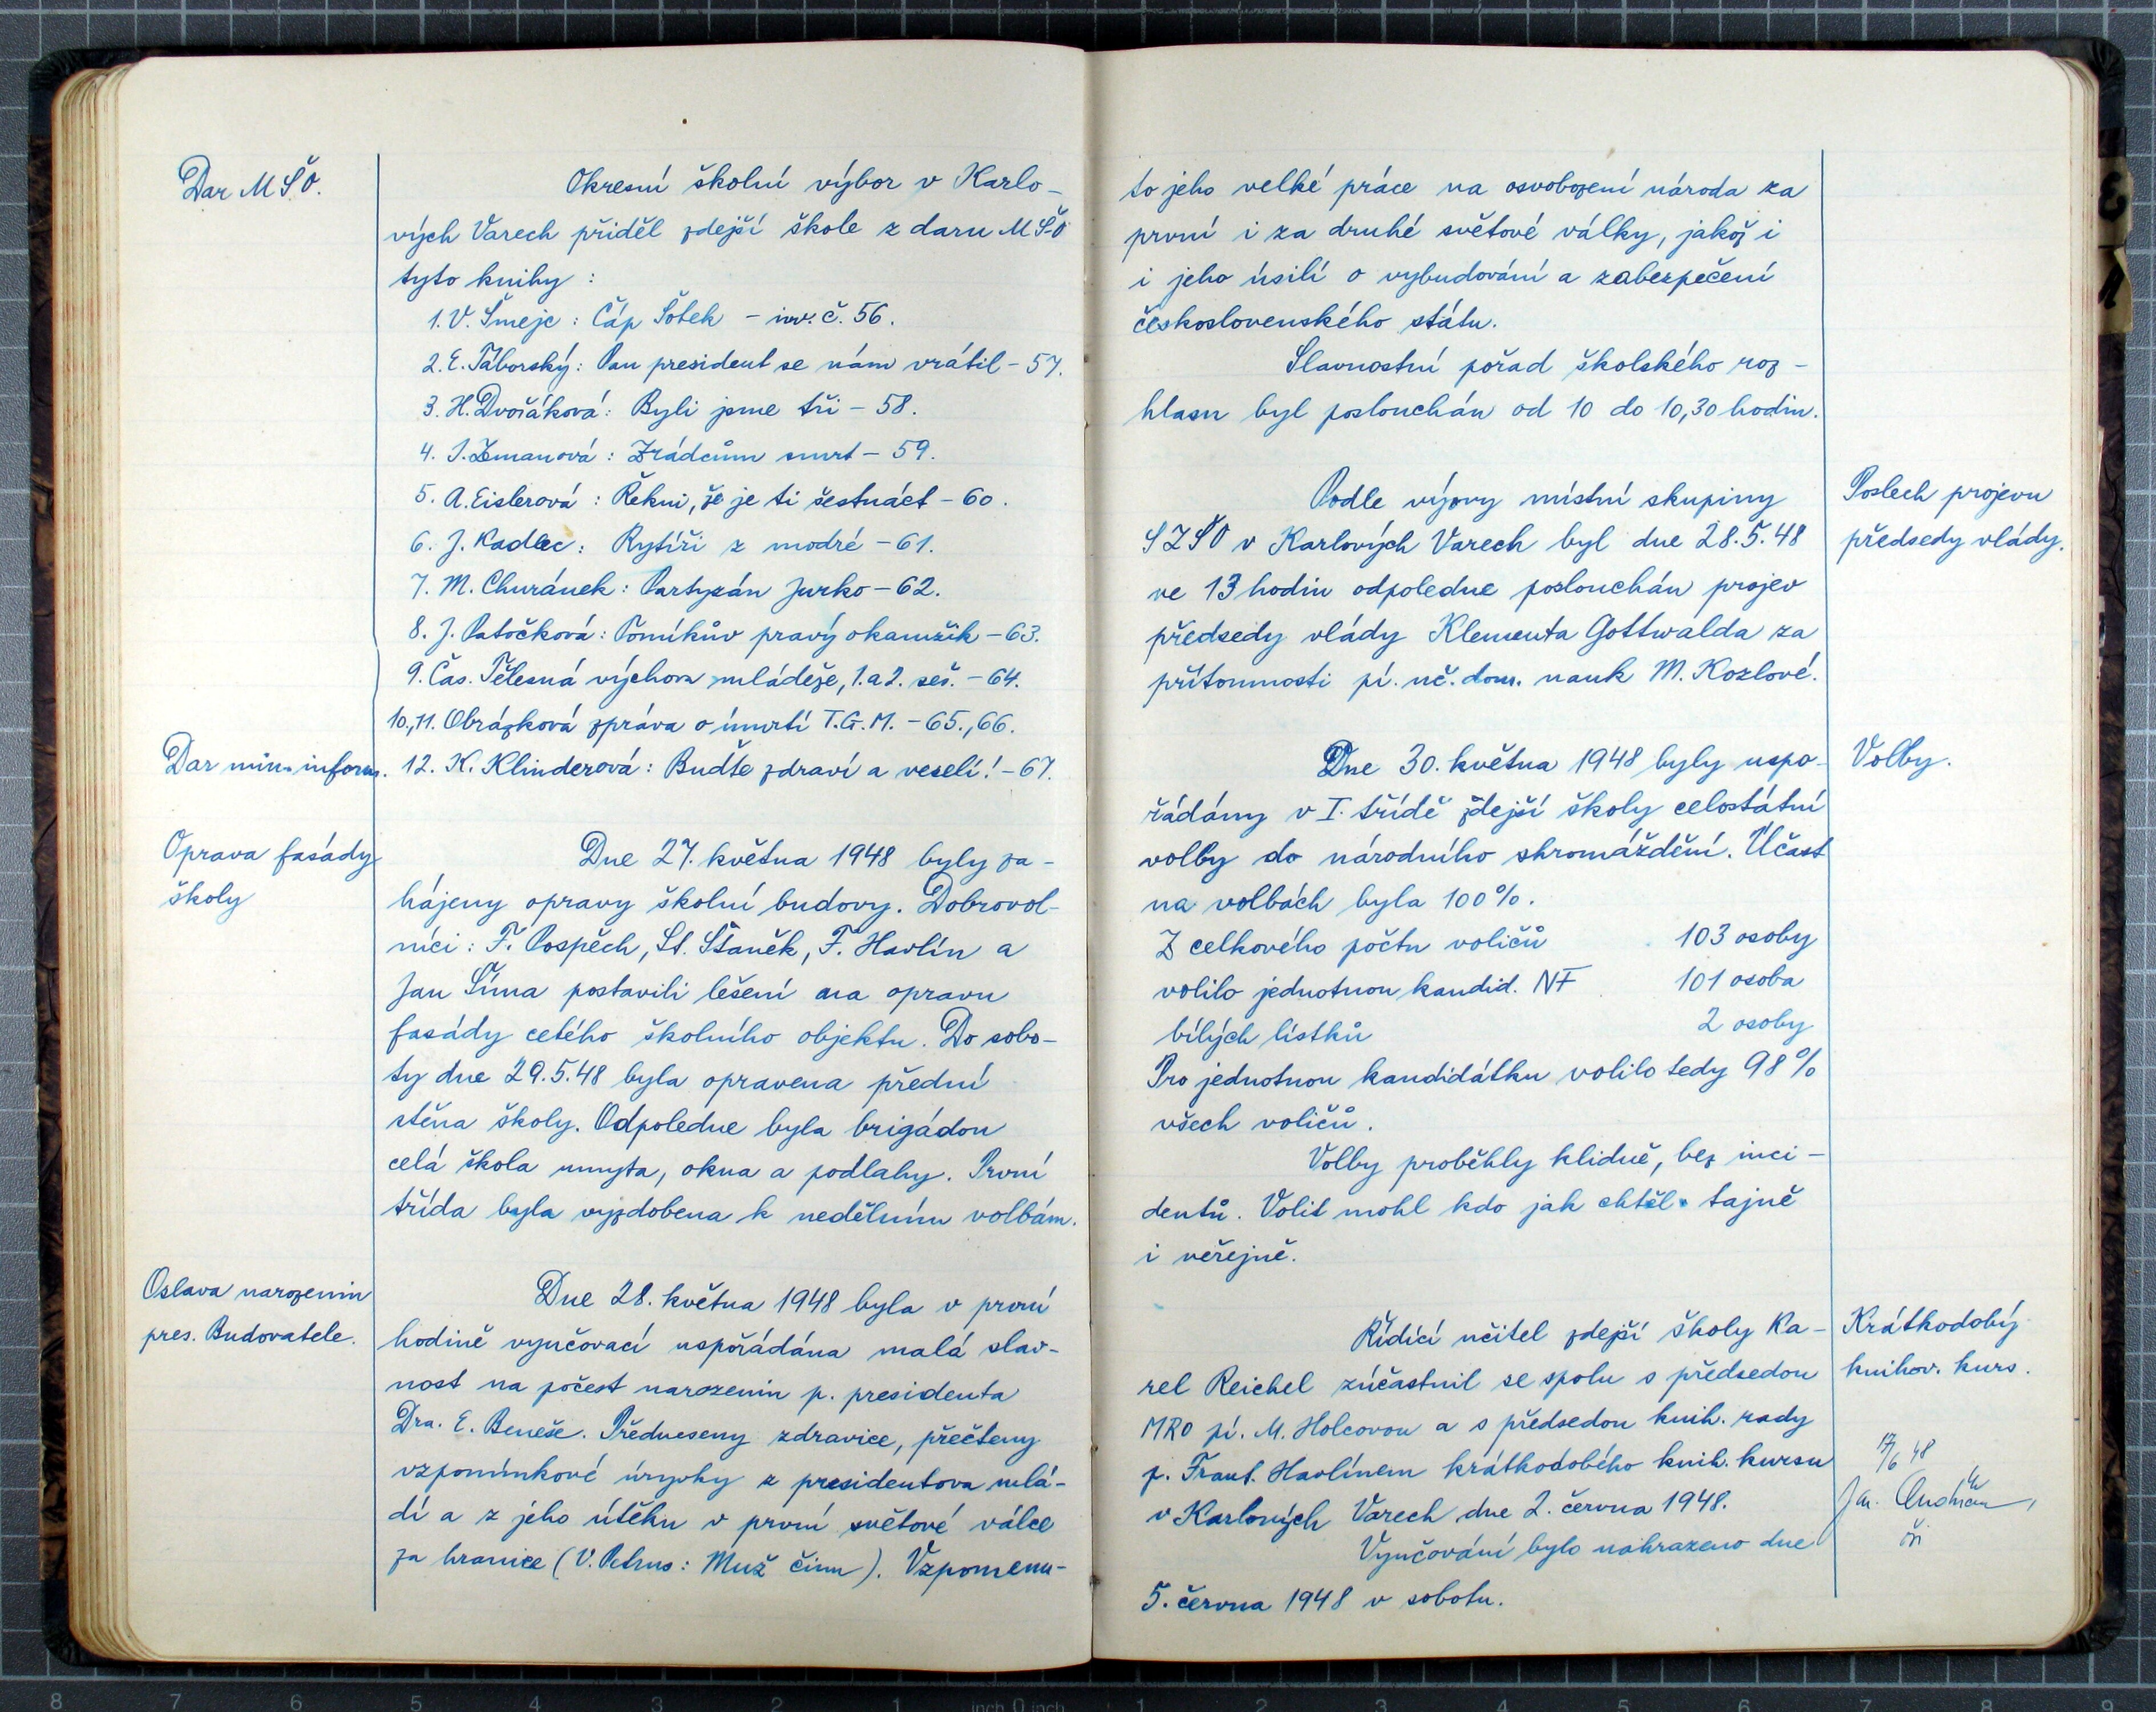 Dar MŠO.
Okresní školní výbor v Karlo-
vých Varech přiděl zdejší škole z daru MŠO
tyto knihy :
1. V. Šmejc : Čáp Šotek - inv. č. 56.
2. E. Táborský : Pan president se nám vrátil - 57.
3. H. Dvořáková : Byli jsme tři - 58.
4. J. Zemanová : Zrádcům smrt - 59.
5. A. Eislerová : Řekni, že je ti šestnáct - 60.
6. J. Kadlec : Rytíři z modré - 61.
7. M. Churánek : Partyzán Jurko - 62.
8. J. Patočková : Tomíkův pravý okamžik - 63.
9. Čas. Tělesná výchova mládeže, 1. a 2. seš. - 64.
10., 11. Obrázková zpráva o úmrtí T.G.M. - 65., 66.
Dar min. inform.
12. K. Klinderová : Buďte zdraví a veselí! - 67.
Oprava fasády
školy
Dne 27. května 1948 byly za-
hájeny opravy školní budovy. Dobrovol-
níci : F. Pospěch, St. Staněk, F. Havlín a
Jan Šíma postavili lešení na opravu
fasády celého školního objektu. Do sobo-
ty dne 29.5.48 byla opravena přední
stěna školy. Odpoledne byla brigádou
celá škola umyta, okna a podlahy. První
třída byla vyzdobena k nedělním volbám.
Oslava narozenin
pres. Budovatele.
Dne 28. května 1948 byla v první
hodině vyučovací uspořádána malá slav-
nost na počest narozenin p. presidenta
Dra. E. Beneše. Předneseny zdravice, přečteny
vzpomínkové úryvky z presidentova mlá-
dí a z jeho útěku v první světové válce
za hranice (V. Petrus : Muž činu). Vzpomenu-
to jeho velké práce na osvobození národa za
první i za druhé světové války, jakož i
i jeho úsilí o vybudování a zabezpečení
československého státu.
Slavnostní pořad školského roz-
hlasu byl poslouchán od 10 do 10,30 hodin.
Poslech projevu
předsedy vlády.
Podle výzvy místní skupiny
SZŠO v Karlových Varech byl dne 28.5.48
ve 13 hodin odpoledne poslouchán projev
předsedy vlády Klementa Gottwalda za
přítomnosti pí. uč. dom. nauk M. Kozlové.
Volby.
Dne 30. května 1948 byly uspo-
řádány v I. třídě zdejší školy celostátní
volby do národního shromáždění. Účast
na volbách byla 100%.
Z celkového počtu voličů 103 osoby
volilo jednotnou kandid. NF 101 osoba
bílých lístků 2 osoby
Pro jednotnou kandidátku volilo tedy 98%
všech voličů.
Volby proběhly klidně, bez inci-
dentů. Volit mohl kdo jak chtěl. tajně
i veřejně.
Krátkodobý
knihov. kurs.
Řídící učitel zdejší školy Ka-
rel Reichel zúčastnil se spolu s předsedou
MRO pí. M. Holcovou a s předsedou knih. rady
p. Frant. Havlínem krátkodobého knih. kursu
v Karlových Varech dne 2. června 1948.
Vyučování bylo nahrazeno dne
5. června 1948 v sobotu.
8 7 6 5 4 3 2 1 inch 0 inch 1 2 3 4 5 6 7 8 9